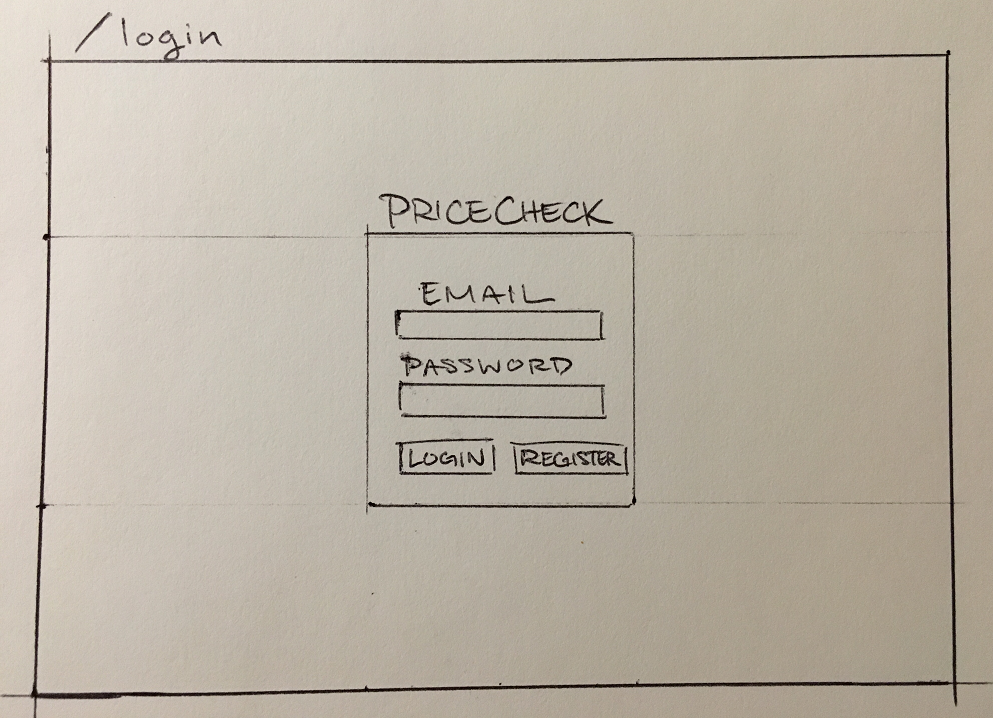 /login
PRICECHECK
EMAIL
PASSWORD
LOGIN REGISTER